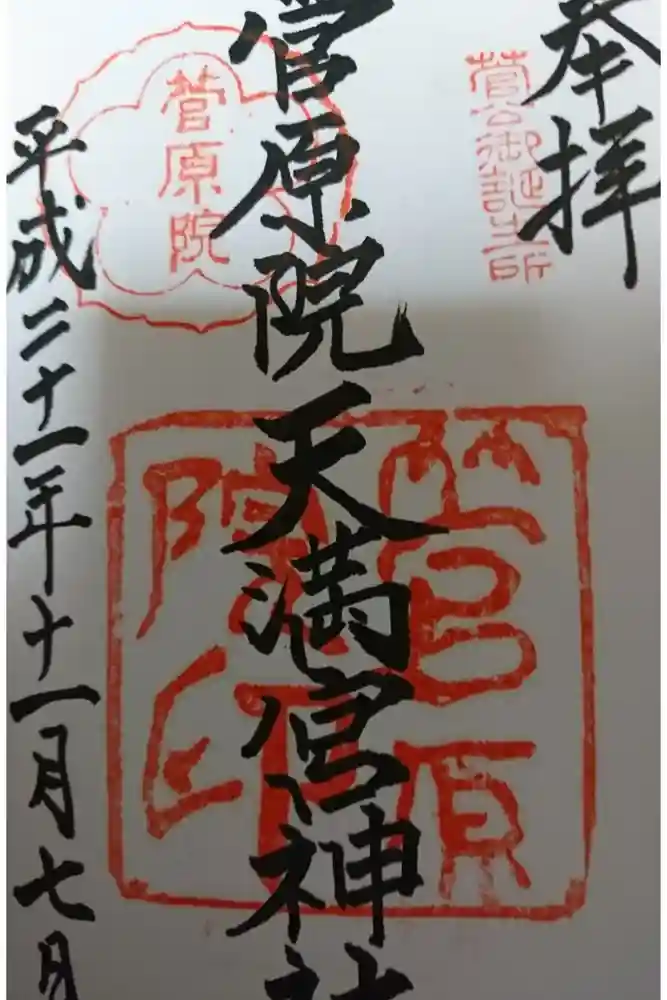 奉拝
菅公御誕生所
菅原院天満宮神社
菅原院
菅原院印
平成二十一年十一月七日